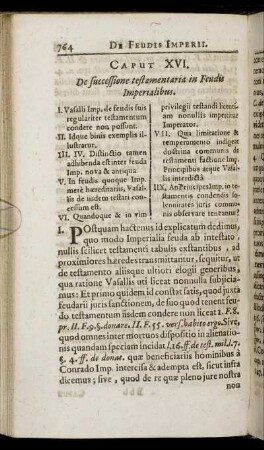 764 DE FEUDIS IMPERII.
CAPUT XVI.
De successione testamentaria in Feudis
Imperialibus.
I. Vasalli Imp. de feudis sui
regulariter testamentum
condere non possunt.
II. Idque binis exemplis il-
lustratur.
III. IV. Distinctio tamen
adhibenda est inter feuda
Imp. nova & antiqua
V. In feuda quoque Imp.
mere hæreditaria, Vasal-
lis de iisdem testari con-
cessum est.
VI. Quandoque & in vim
privilegii testandi licenti-
am nonnullis impertitur
Imperator.
VII. Qua limitatione &
temperamento indiget
doctrina communis de
testamenti factione Imp.
Principibus atque Vasal-
lis interdicta
IIX. An Principes Imp. in
testamentis condendis so-
lennitates juris commu-
nis observare teneantur?
I. POstquam hactenus id explicatum dedimus,
quo modo Imperialis feuda ab intestato,
nullis scilicet testamenti tabulis exstantibus, ad
proximiores hæredes transmittantur, sequitur, ut
de testamento aliisque ultiori elogii generibus,
qua ratione Vasallis uti liceat nonnulla subjicia-
mus: Ex primo quidem id constat satis, quod juxta
feudalis juris sanctionem, de suo quod tenent feu-
do testamentum iisdem condere non liceat 1. F. 8.
pr. II. F. 9. §. donare. II. F. 55. vers. habito ergo. Sive,
quod omnes inter mortuos dispositio in alienatio-
nis quandam speciem incidat l. 16. ff. de test. mil. l. 7.
§. 4. ff. de donat. quæ beneficiariis hominibus à
Conrado Imp. intercisa & adempta est, sicut infra
dicemus; sive, quod de re quæ pleno jure nostra
non